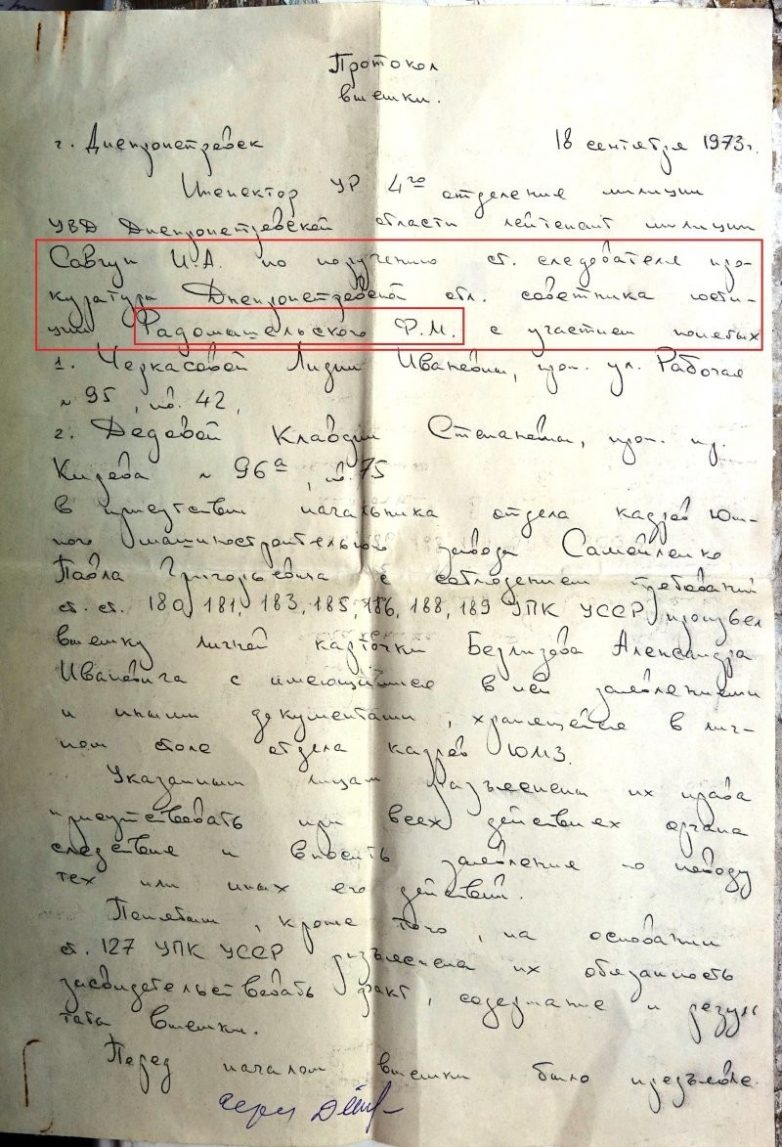 Протокол
выемки.
г. Днепропетровск 18 сентября 1973г.
Инспектор УР 4го отделения милиции
УВД Днепропетровской области лейтенант милиции
Савчун И.А. по поручению ст. следователя про-
куратуры Днепропетровской обл. советника юсти-
ции Радомышельского Ф.М. с участием понятых
1. Черкасовой Лидии Ивановны, прож. ул. Рабочая
№ 95, кв. 42,
2. Дедовой Клавдии Степановны, прож. пр.
Кирова № 96а, кв. 75
в присутствии начальника отдела кадров Юж-
ного машиностроительного завода Самойленко
Павла Григорьевича с соблюдением требований
ст. ст. 180, 181, 183, 185, 186, 188, 189 УПК УССР произвел
выемку личной карточки Александра
Ивановича с имеющимися в ней заявлениями
и иными документами, хранящейся в лич-
ном столе отдела кадров ЮМЗ.
Указанным лицам разъяснены их права
присутствовать при всех действиях органа
следствия и вносить заявления по поводу
тех или иных его действий.
Понятым, кроме того, на основании
ст. 127 УПК УССР разъяснена их обязанность
засвидетельствовать факт, содержание и резуль
тата выемки.
Перед началом выемки было предъявле